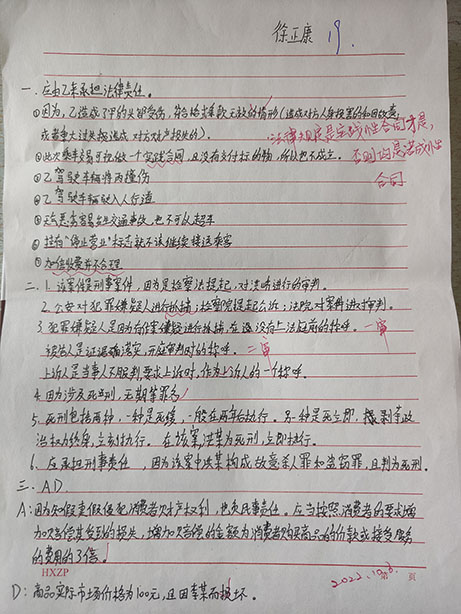 徐正康 19.
一. 应由乙来承担法律责任。
①因为,乙造成了甲的头部受伤,符合格式条款无效的情形(造成对方人身损害的和因故意
或者重大过失损造成对方财产损失的)。
法律规定是实践性合同才是,
②此次乘车交易可视做一个实践合同,且没有交付标的物,所以也不成立。
否则均是诺成性
合同
③乙驾驶车辆将丙撞伤
④乙驾驶车辆驶入人行道
⑤天气恶劣容易发生交通事故,也不可以超车
⑥挂有“停止营业”标志就不该继续接送乘客
⑦加倍收费并不合理
二. 1. 该案件是刑事案件,因为是检察院提起,对洪峤进行的审判。
2. 公安对犯罪嫌疑人进行抓捕;检察院提起公诉;法院对案料进行审判。
3. 犯罪嫌疑人是因为有作案嫌疑进行抓捕,在还没有上法庭前的称呼。 一审
被告人是证据确凿实,开庭审判时的称呼。 二审
上诉人是当事人不服判要求上诉时,作为上诉人的一个称呼。
4. 因为涉及死刑,无期等罪名
5. 死刑包括两种,一种是死缓,一般在两年后执行。另一种是死立即,剥剥夺政
治权力终身,立刻执行。 在该案洪某为死刑,立即执行。
6. 应承担刑事责任,因为该案中洪某构成故意杀人罪和盗窃罪,且判为死刑。
三. AD
A:因为知假卖假侵犯消费者财产权利,也负民事责任。应当按照消费者的要求增
加赔偿其受到的损失,增加赔偿的金额为消费者购买商品的价款或接受服务
的费用的3倍。
HXZP
页
2022.10.6.
D:商品实际市场价格为100元,且因李某而损坏.